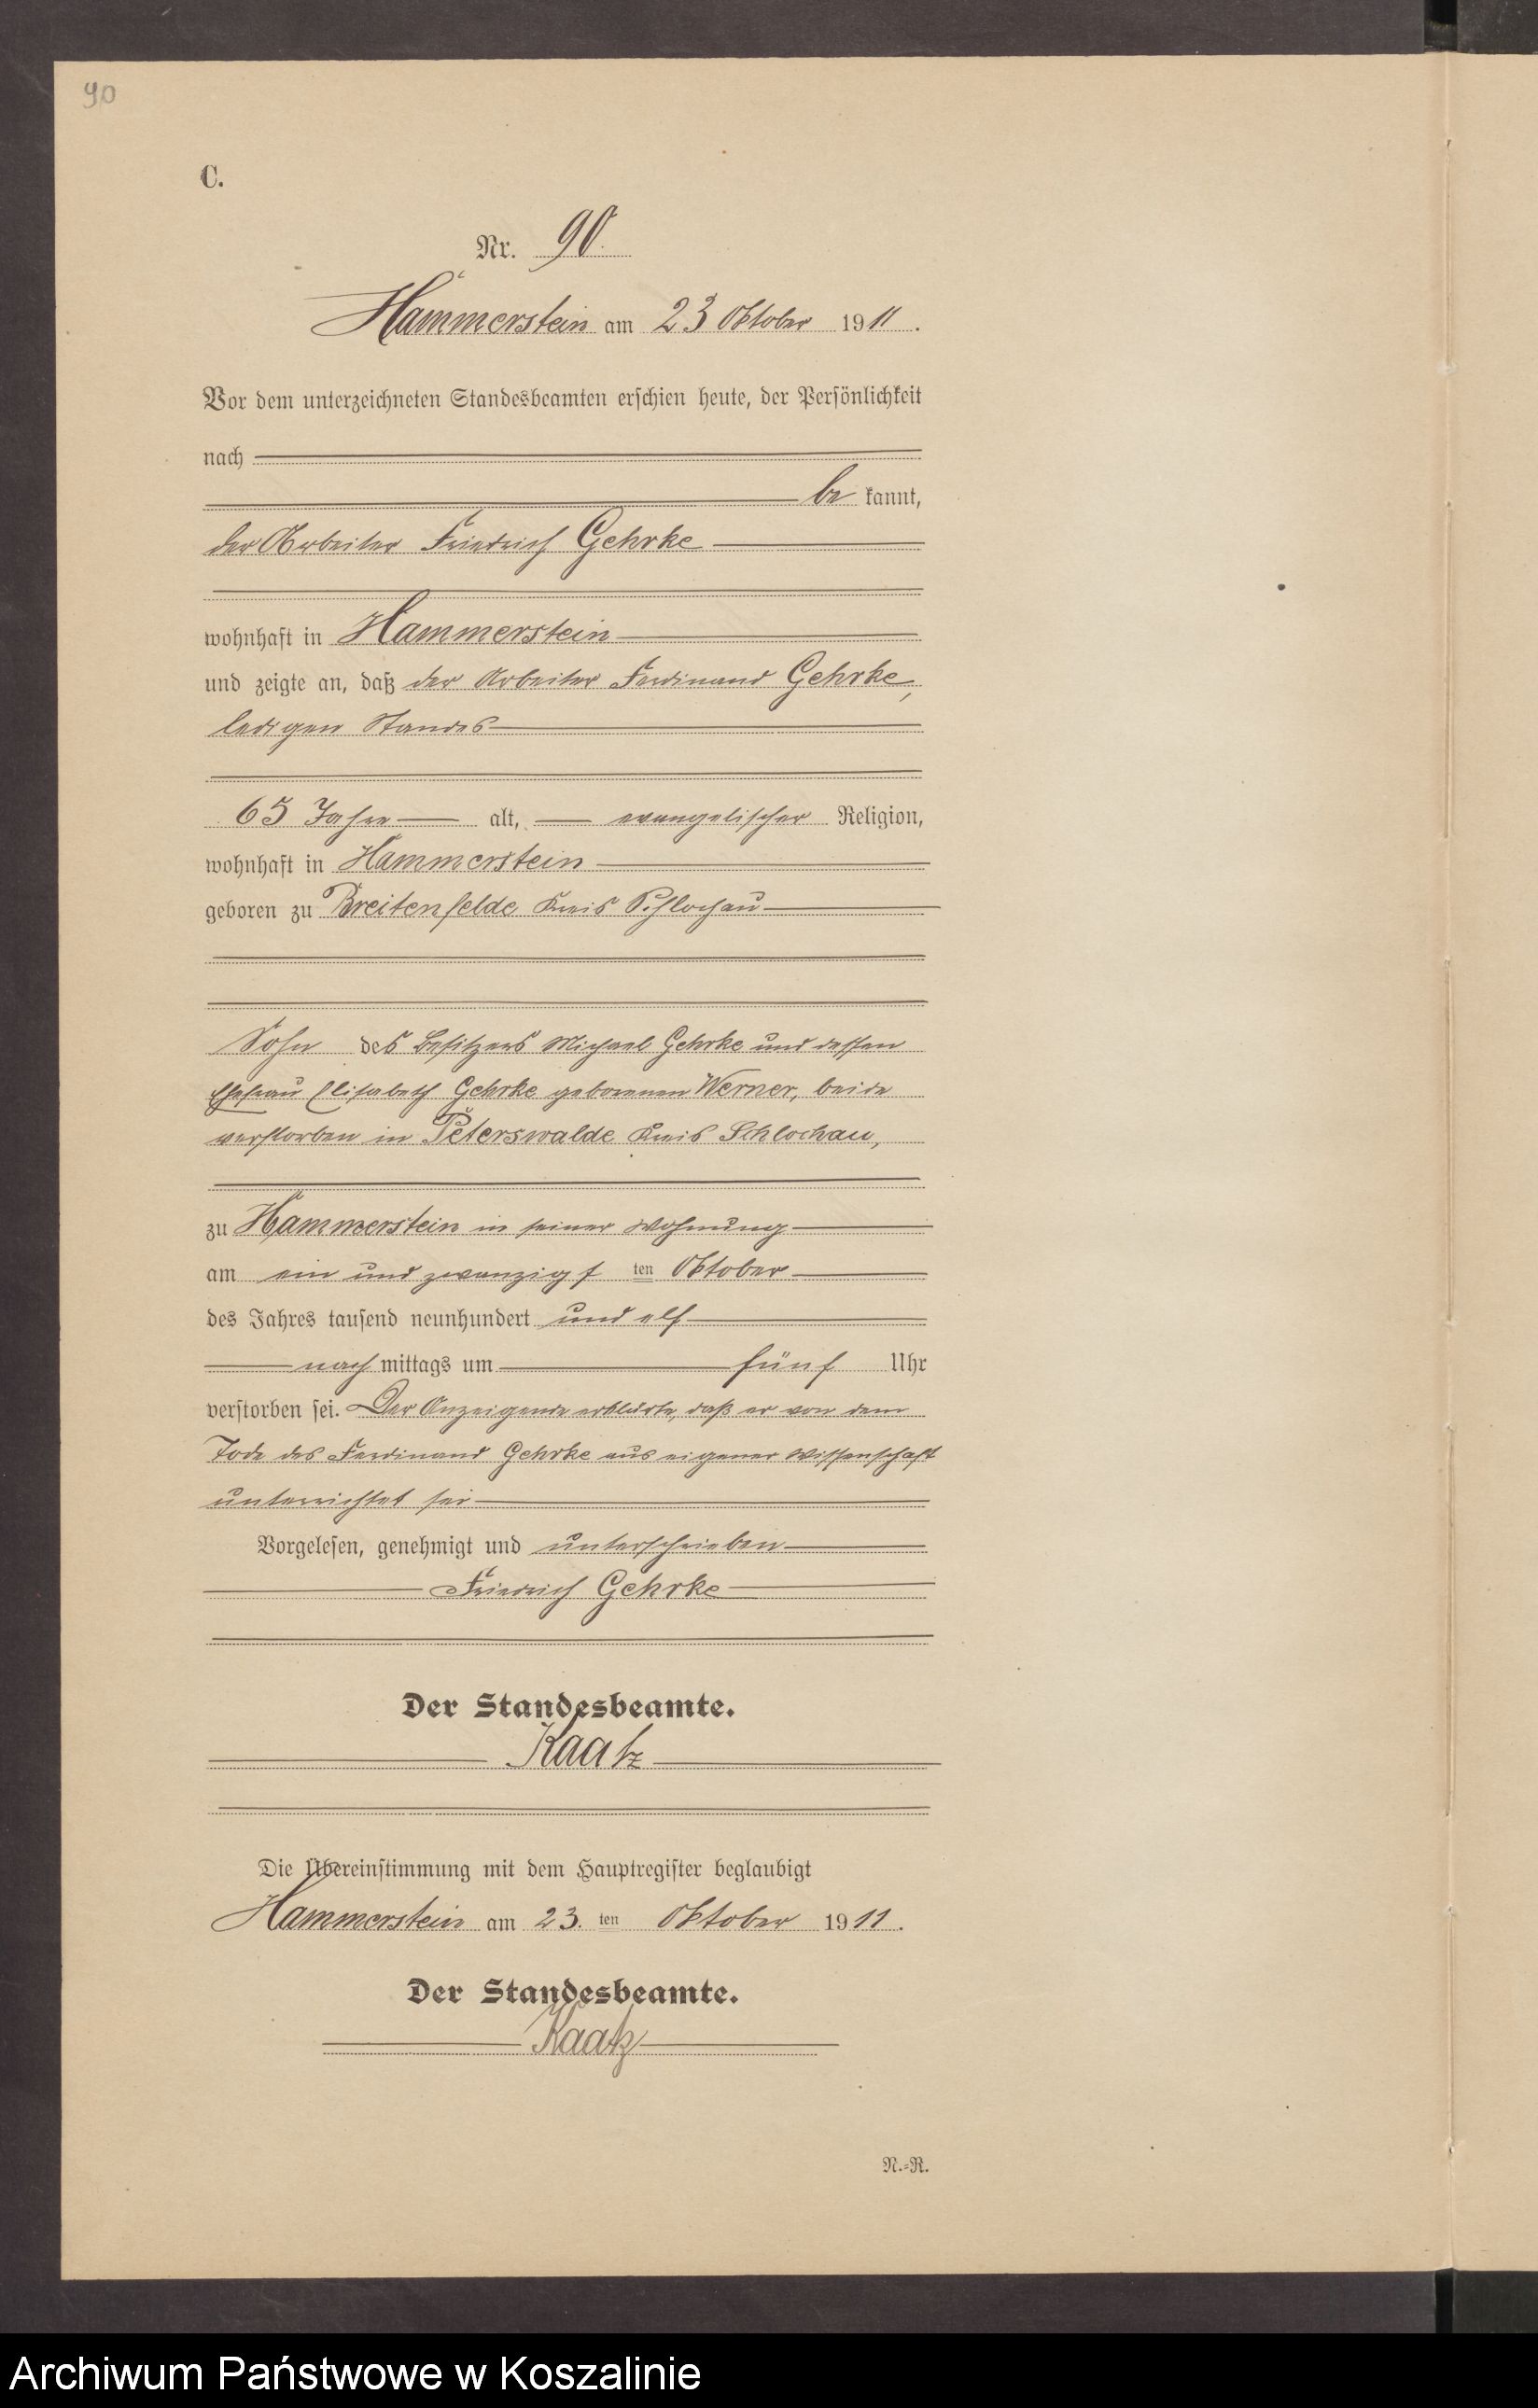 90
C.
Nr. 90.
Hammerstein am 23 Oktober 1911.
Vor dem unterzeichneten Standesbeamten erschien heute, der Persönlichkeit
nach
be kannt,
der Arbeiter Friedrich Gehrke
wohnhaft in Hammerstein
und zeigte an, daß der Arbeiter Ferdinand Gehrke,
ledigen Standes
65 Jahre alt, evangelischer Religion,
wohnhaft in Hammerstein
geboren zu Breitenfelde Kreis Schlochau
Sohn des Besitzers Michael Gehrke und dessen
Ehefrau Elisabeth Gehrke geborenen Werner, beide
verstorben in Peterswalde Kreis Schlochau,
zu Hammerstein in seiner Wohnung
am ein und zwanzigsten Oktober
des Jahres tausend neunhundert und elf
nach mittags um fünf Uhr
verstorben sei. Der Anzeigende erklärte, daß er von dem
Tode des Ferdinand Gehrke aus eigener Wissenschaft
unterrichtet sei
Vorgelesen, genehmigt und unterschrieben
Friedrich Gehrke
Der Standesbeamte.
Kaatz
Die Übereinstimmung mit dem Hauptregister beglaubigt
Hammerstein am 23. ten Oktober 1911.
Der Standesbeamte.
Kaatz
N.-R.
Archiwum Państwowe w Koszalinie